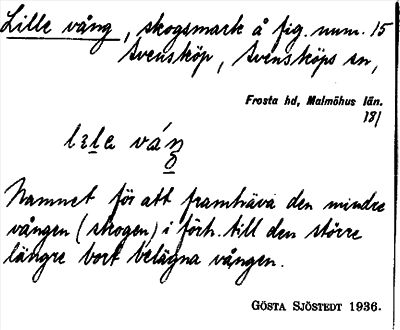 Lille vång, skogsmark å fig. num. 15
Svensköp, Svensköps sn,
Frosta hd, Malmöhus län.
181
lɛlɛ váŋ
Namnet för att framhäva den mindre
vången (skogen) i förh. till den större
längre bort belägna vången.
GÖSTA SJÖSTEDT 1936.